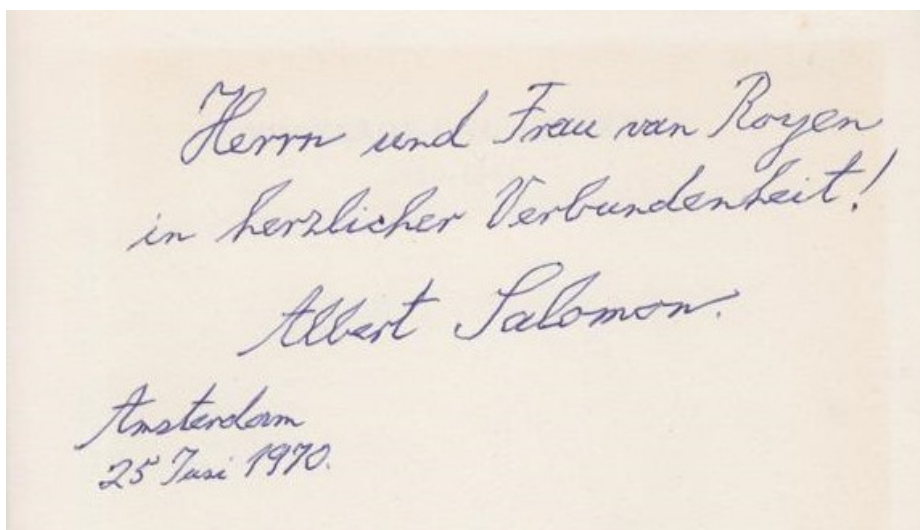 Herrn und Frau van Royen
in herzlicher Verbundenheit!
Albert Salomon.
Amsterdam
25 Juni 1970.